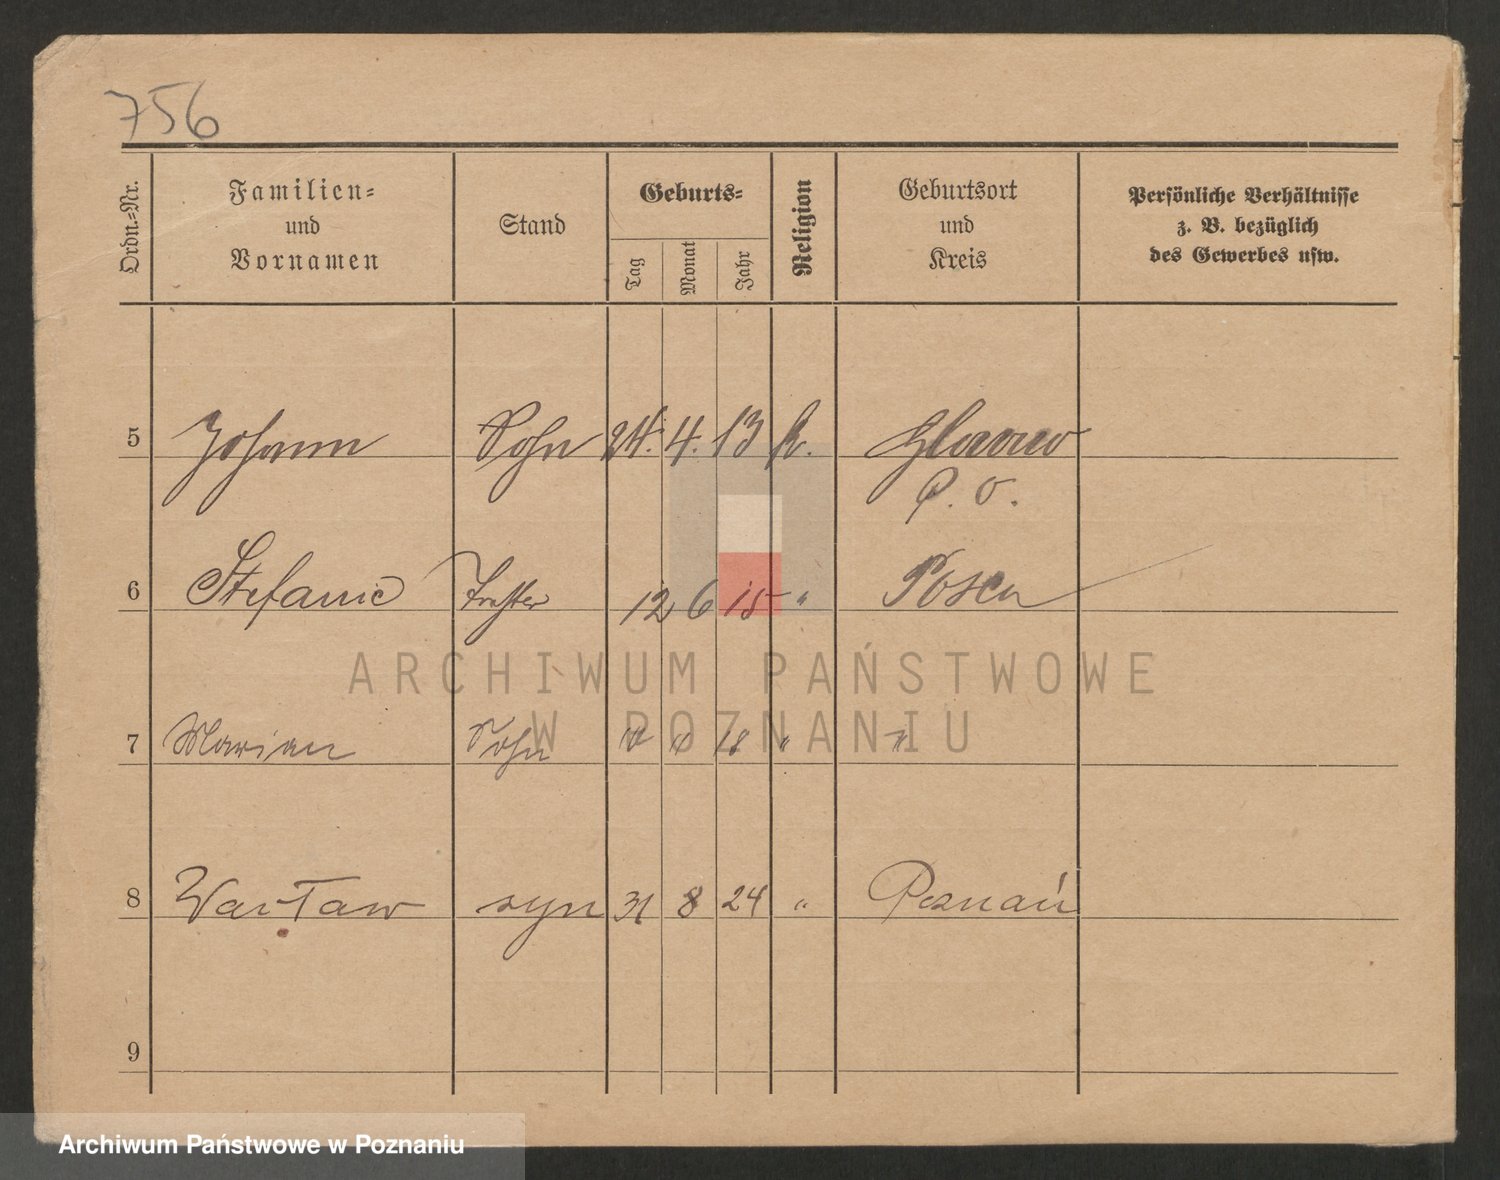 756
Ordn.-Nr.
Familien-
und
Vornamen
Stand
Geburts-
Tag Monat Jahr
Religion
Geburtsort
und
Kreis
Persönliche Verhältnisse
z. B. bezüglich
des Gewerbes usw.
5 Johann Sohn 24. 4. 13 k.
P. O.
6 Stefanie 12 6 15 " Posen
7 Marian Sohn 18 " "
8 Wacław syn 31 8 24 " Poznań
9
ARCHIWUM PAŃSTWOWE
W POZNANIU
Archiwum Państwowe w Poznaniu